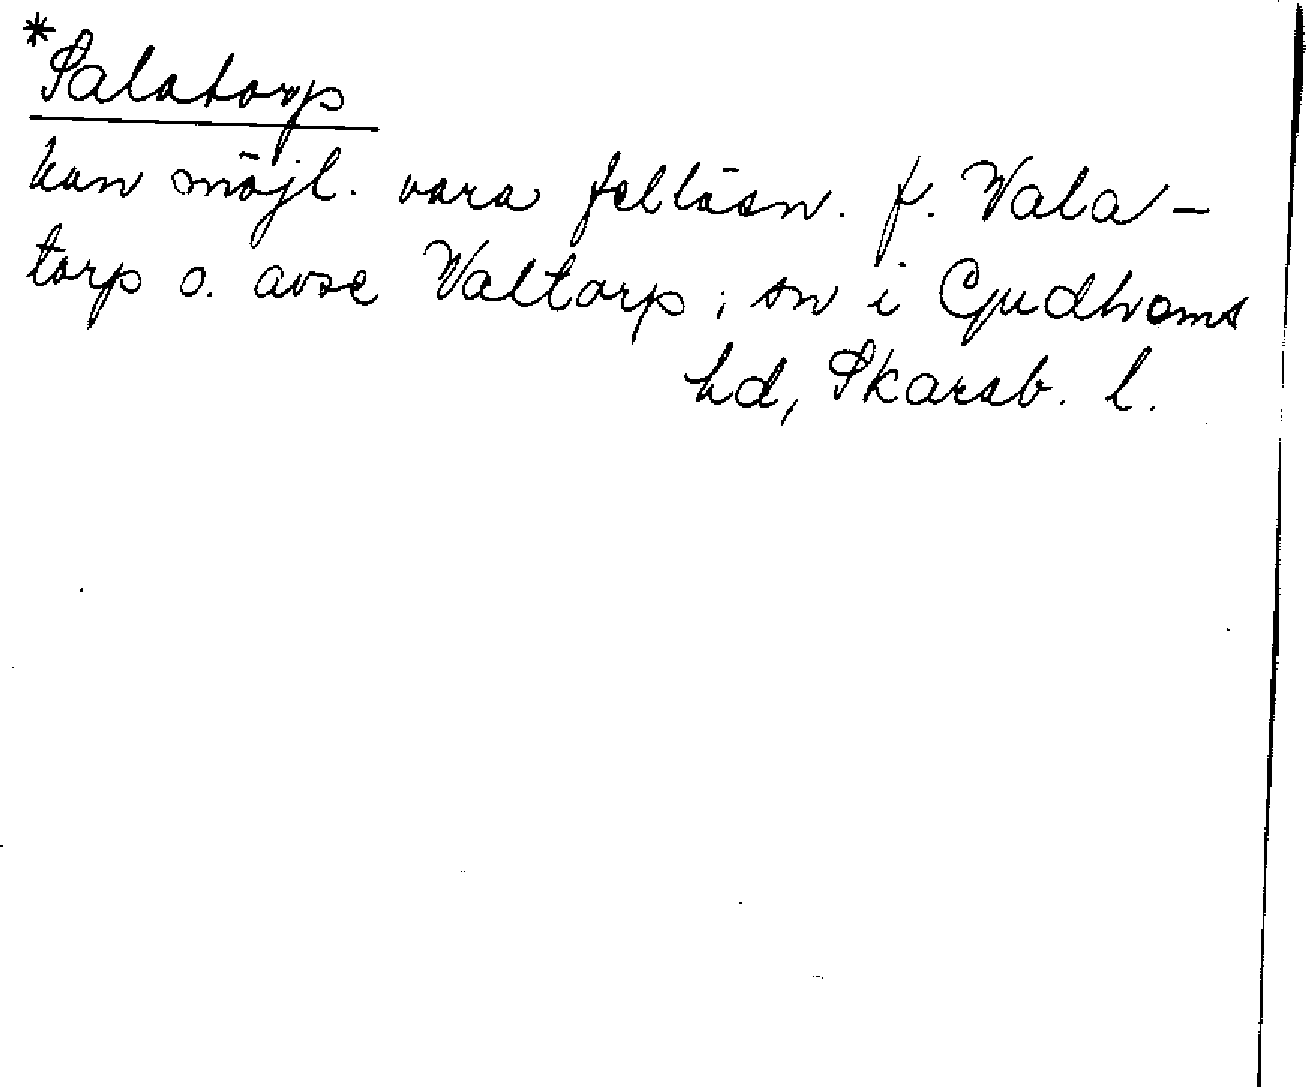 *Salatorp
kan möjl. vara felläsn. f. Wala-
torp o. avse Valtorp; sn i Gudhems
hd, Skarab. l.